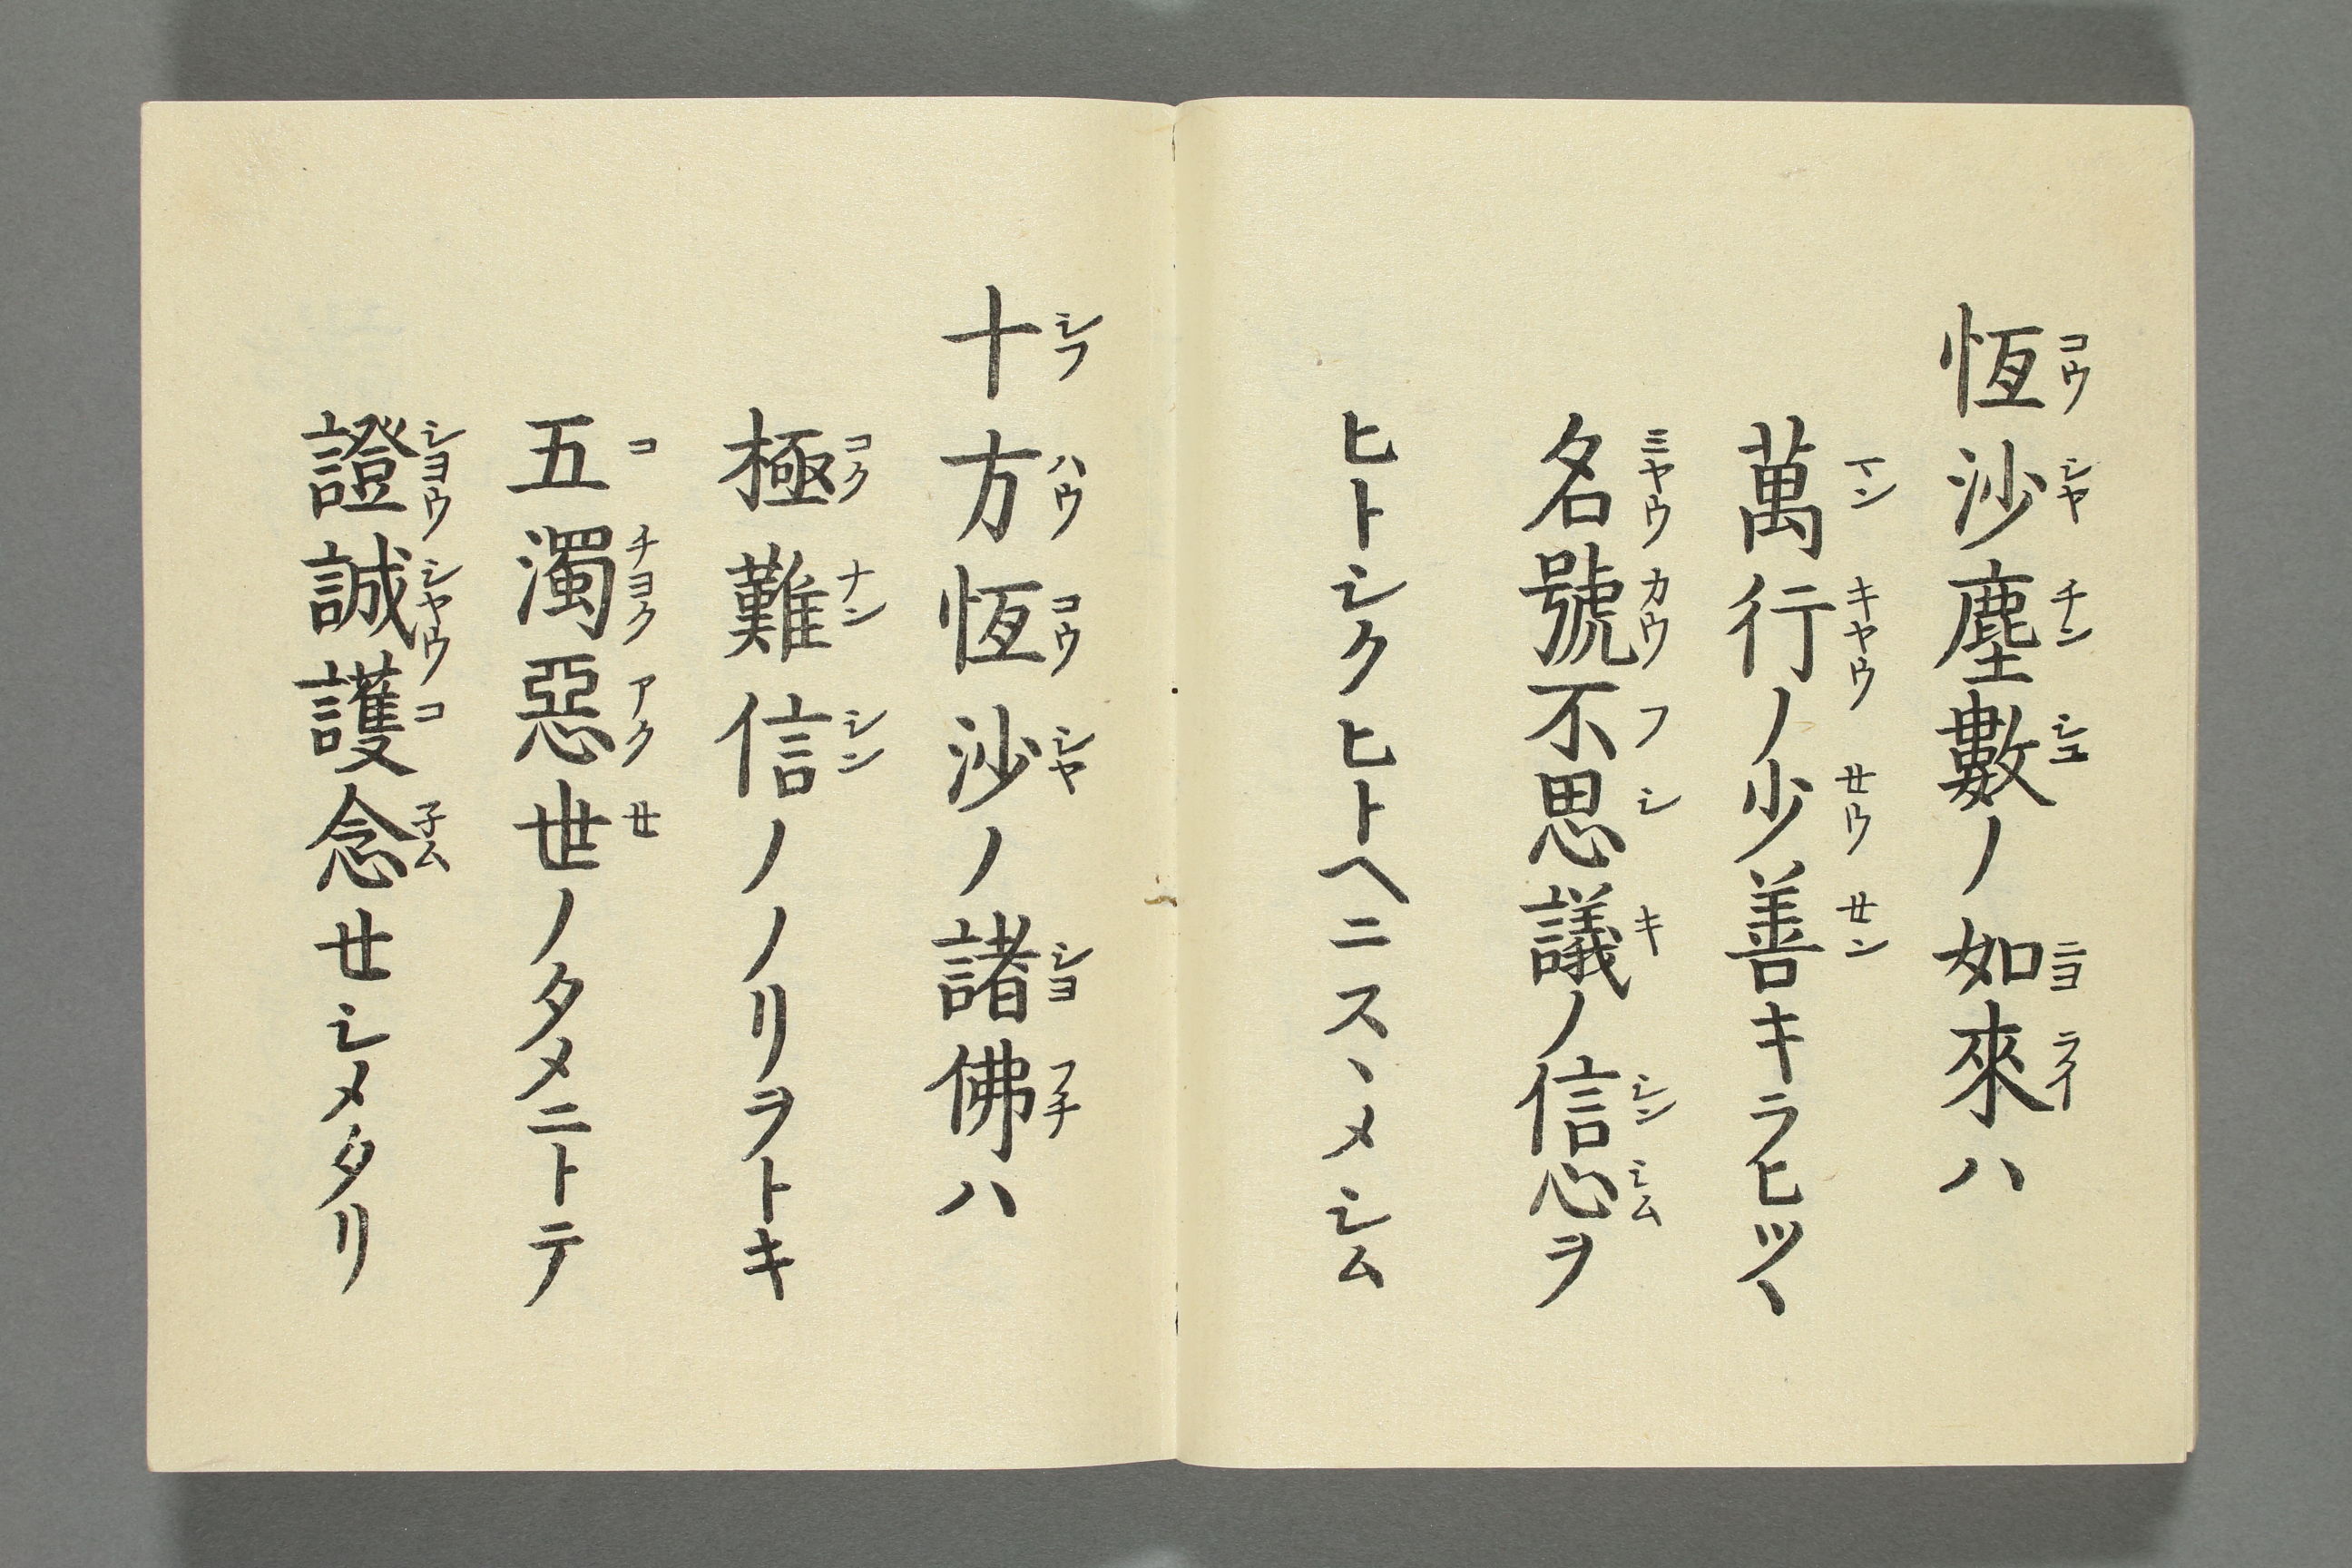 恆沙塵數ノ如來ハ
萬行ノ少善キラヒツヽ
名號不思議ノ信心ヲ
ヒトシクヒトヘニスヽメシム
十方恆沙ノ諸佛ハ
極難信ノノリヲトキ
五濁惡世ノタメニトテ
證誠護念セシメタリ